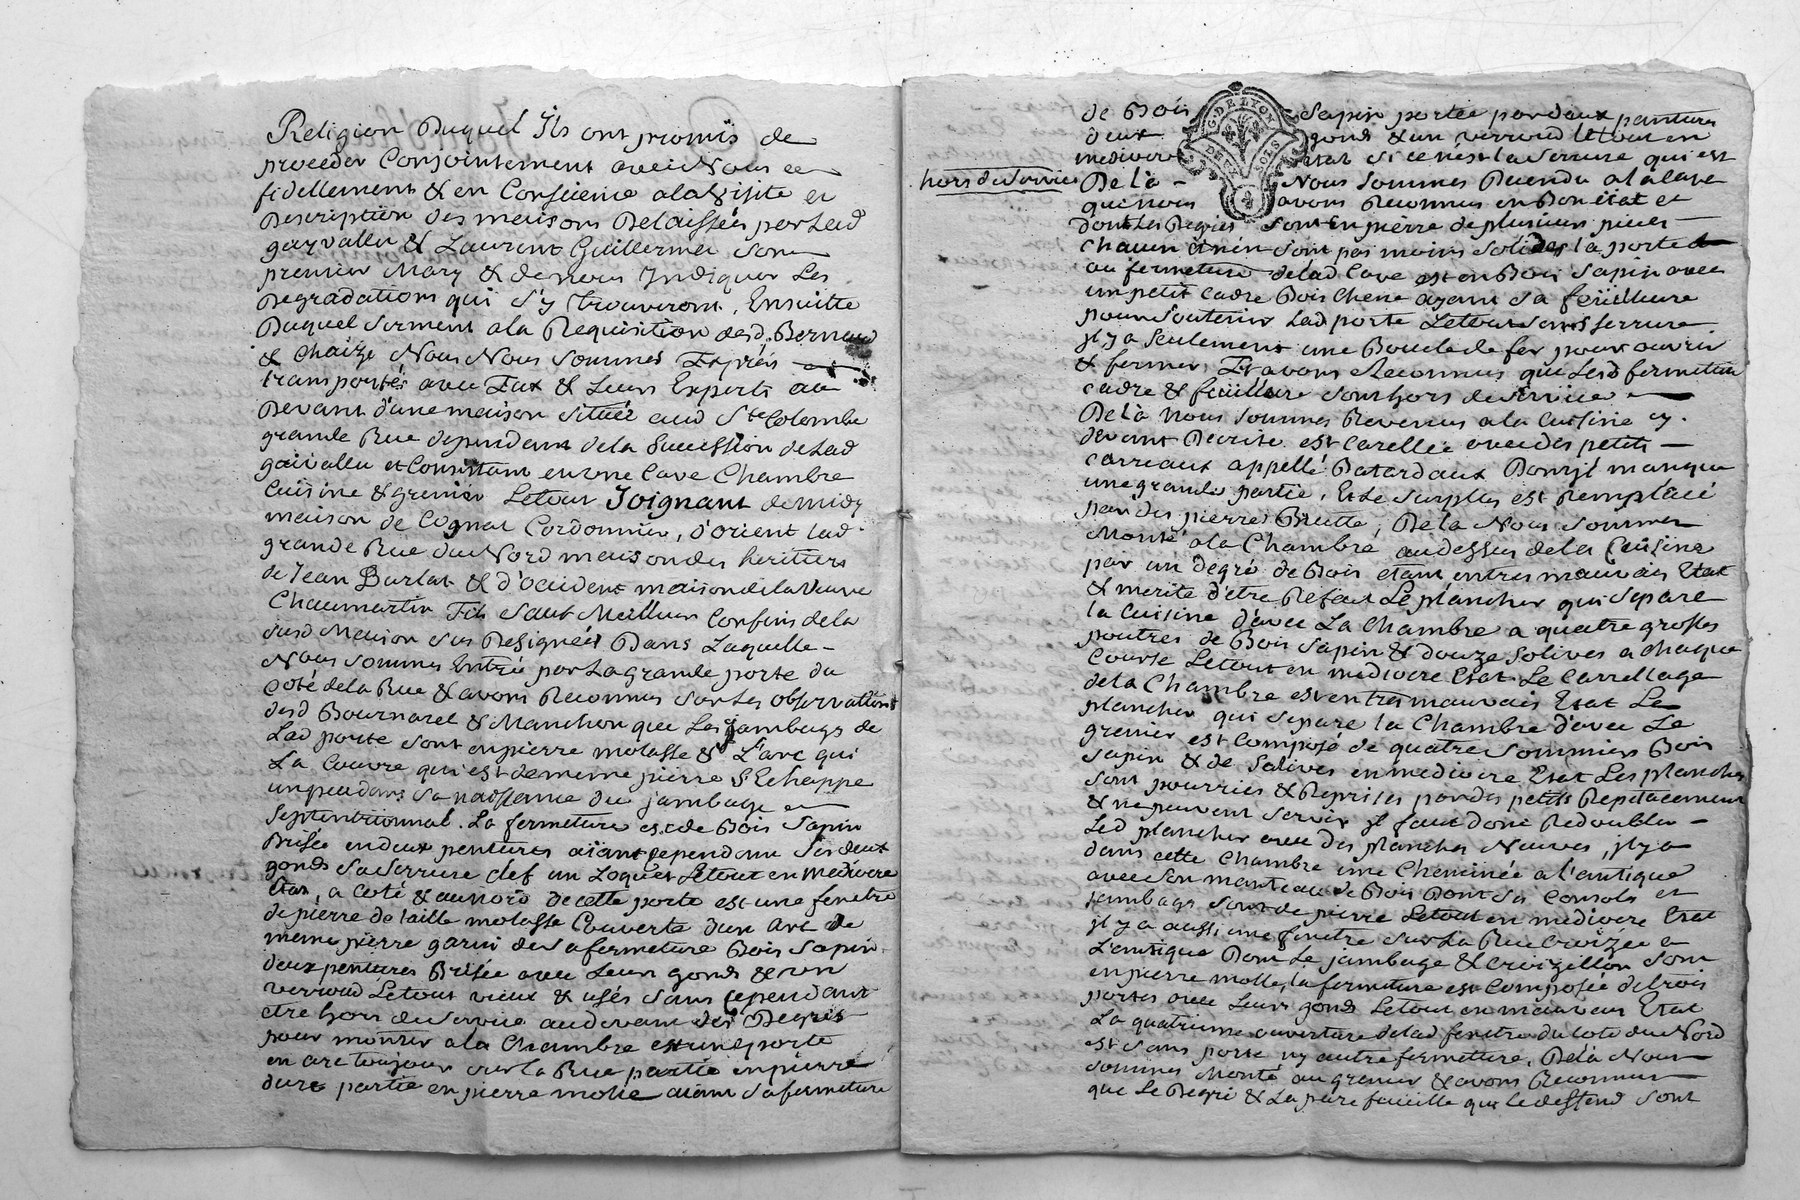 Religion Duquel Ils ont promis de
proceder Conjointement avec Nous en
fidellement & en Conscience a la Visite et
Description des maisons Delaissées par Lad
gayvallet & Laurent Guillermet son
premier Mary & de nous Indiquer Les
Degradations qui s'y trouveront, Ensuitte
Duquel serment a la Requisition desd. Bernard
& Chaize Nous Nous sommes Exprés
transportés avec Eux & Leurs Experts au
Devant d'une maison située aud Ste Colombe
grande Rue dependant de la Succession de Lad
gaivallet et Consistant en une Cave Chambre
Cuisine & grenier Letout Joignant de midy
maison de Cognat Cordonnier, d'orient lad
grande Rue du Nord maison des heritiers
de Jean Burlat & d'occident maison de la Veuve
Chaumartin Fils sauf Meilleurs Confins de la
susd Maison sus Designées Dans Laquelle
Nous sommes Entrés par La grande porte du
Coté de la Rue & avons Reconnus sur Les observations
desd Bournaret & Manchon que Les jambages de
Lad porte sont en pierre molasse & L'arc qui
La Couvre qui est de meme pierre S'Echappe
un peu dans sa naissance du jambage
Septentrionnal. La fermeture est de Bois Sapin
Brisée en deux pentures aïant cependant ses deux
gonds sa serrure clef un Loquet Letout en mediocre
Etat, a coté & au nord de cette porte est une fenetre
de pierre de taille molasse Couverte d'un Arc de
meme pierre garni de sa fermeture Bois Sapin
deux pentures Brisée avec Leurs gonds & un
verroud Letout vieux & usés sans cependant
etre hors de service au devant des Degrés
pour monter a la Chambre est une porte
en arc toujour sur la Rue partie en pierre
dure partie en pierre molle aiant sa fermeture
de Bois Sapin portée par deux pentures
deux gonds & un verroud le tout en
mediocre etat si ce n'est la serrure qui est
hors de service
De là Nous sommes Decendu a la Cave
que nous avons Reconnus en Bon état et
dont Les Degrés sont en pierre de plusieurs pieces
chacun & n'en sont pas moins solides la porte
ou fermeture delad Cave est en Bois Sapin avec
un petit Cadre Bois Chene ayant sa feüilleure
pour soutenir Lad porte Letout sans serrure
jl y a seulement une Boucle de fer pour ouvrir
& fermer, Et avons Reconnus que Lesd fermeture
cadre & feüillure sont hors de service
De là nous sommes Revenus a la Cuisine cy
devant Decrite est Carellée avec des petits
carreaux appellé Batardaux Dont jl manque
une grande partie, Et Le Surplus est Remplacé
par des pierres Brutte, De la Nous sommes
Monté a la Chambre au dessus de la Cuisine
par un degré de Bois etant en tres mauvais Etat
& merite d'etre Refait Le plancher qui separe
la Cuisine d'avec La Chambre a quatre grosses
poutres de Bois Sapin & douze solives a chaque
Course Letout en mediocre Etat Le Carrellage
de la Chambre est en tres mauvais Etat Le
plancher qui separe la Chambre d'avec Le
grenier est Composé de quatre Sommiers Bois
sapin & de solives en mediocre Etat Les planches
sont pourries & Reprises par des petits Repetacement
& ne peuvent servir jl faut donc Redoubler
Led plancher avec des planches Neuves, jl y a
dans cette Chambre une Cheminée a l'antique
avec son manteau de Bois Dont sa Consols et
jambages sont de pierre Letout en mediocre Etat
jl y a aussi une fenetre sur La Rue Croizée a
L'antique Dont Le jambage & Croizillon sont
en pierre molle, la fermeture est Composée de trois
portes avec Leurs gonds Letout en mauvais Etat
La quatrieme ouverture delad fenetre du coté du Nord
est sans porte ny autre fermeture, De là Nous
sommes Monté au grenier & avons Reconnus
que Le Degré & La pare feuille qui le deffend sont
G. DE LYON
DEUX SOLS